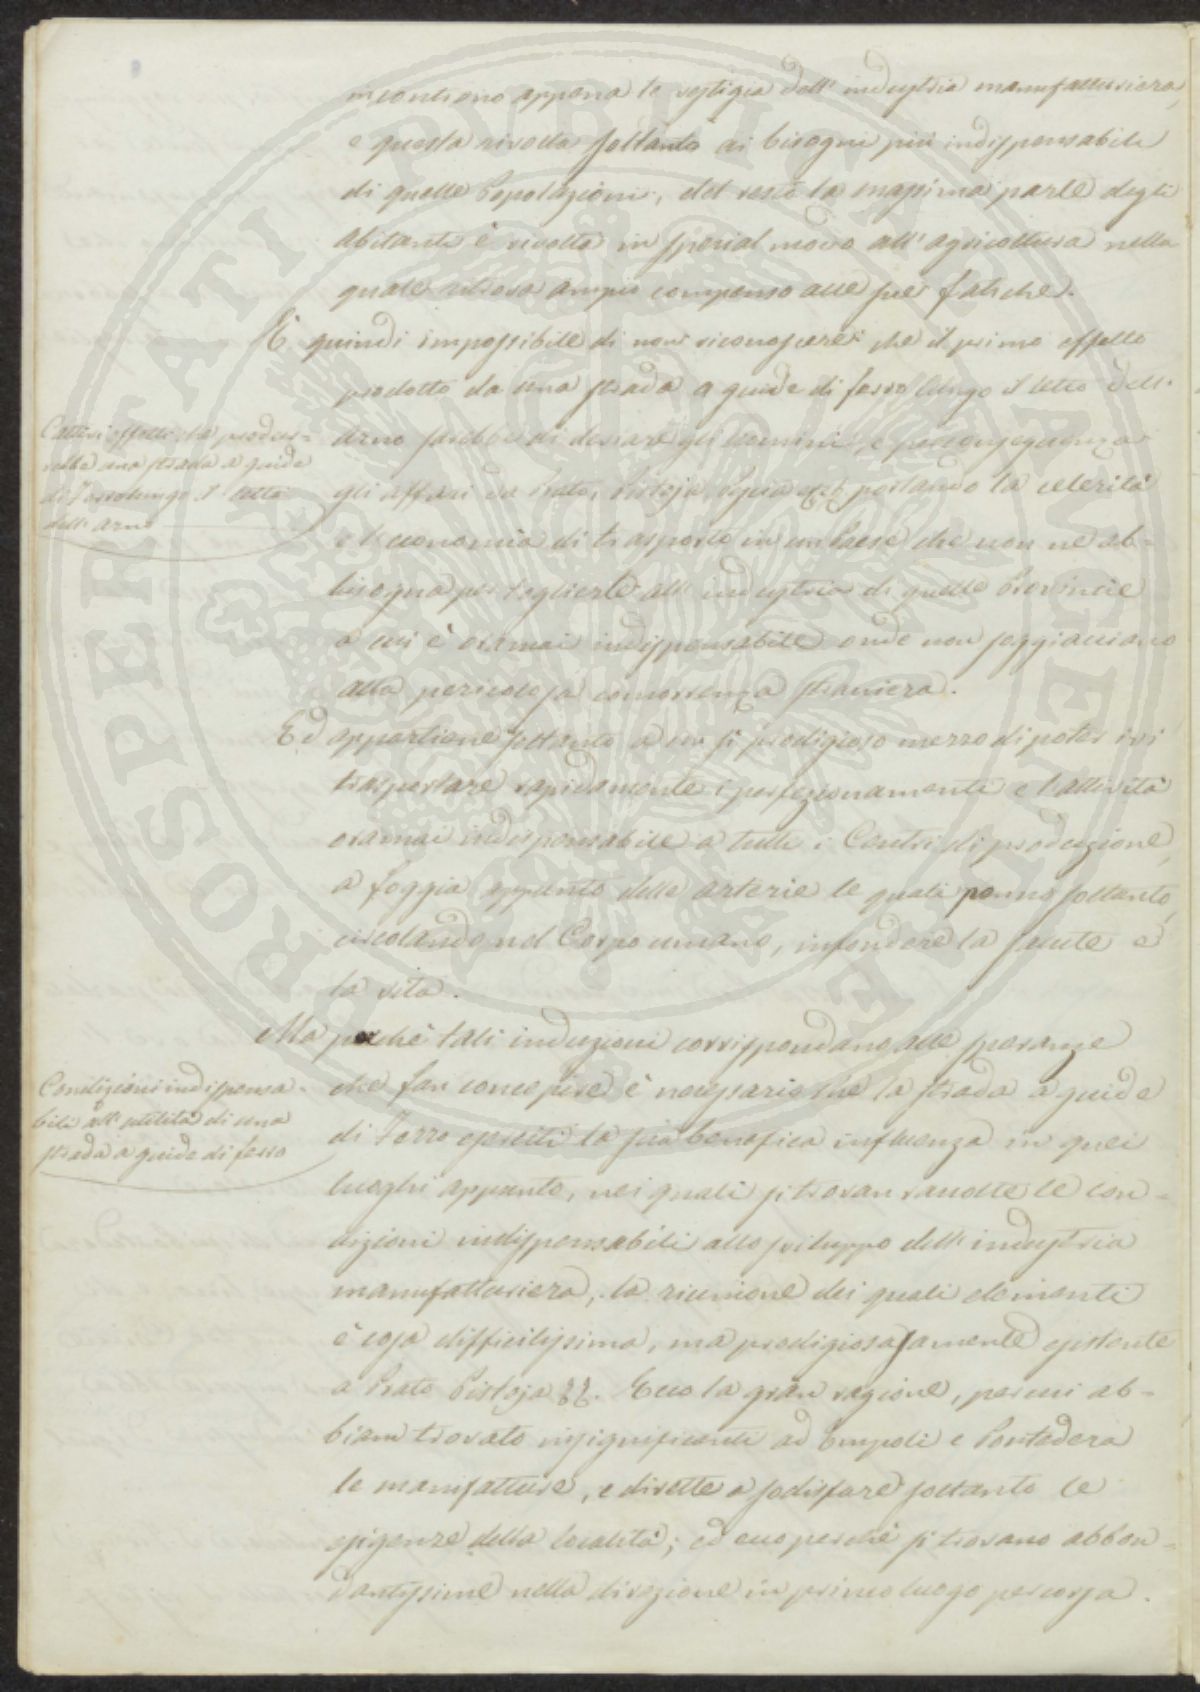 incontrono appena le vestigia dell' industria manufatturiera,
e questa rivolta soltanto ai bisogni più indispensabili
di quelle Popolazioni; del resto la massima parte degli
abitanti è rivolta in special modo all' agricoltura nella
quale ritrova ampio compenso alle sue fatiche.
È quindi impossibile di non riconoscere che il primo effetto
prodotto da una strada a guide di ferro lungo il letto dell'
Arno sarebbe di deviare gli uomini, e per conseguenza
gli affari da Prato, Pistoja, Pescia portando la celerità
e l'economia di trasporto in un Paese che non ne ab=
bisogna per toglierle all' industria di quelle Provincie
a cui è oramai indispensabile onde non soggiacciano
alla pericolosa concorrenza straniera.
Cattivi effetti che produr=
rebbe una strada a guide
di Ferro lungo il letto
dell' Arno
Ed appartiene soltanto a un sì prodigioso mezzo di poter ivi
trasportare rapidamente i perfezionamenti e l'attività
oramai indispensabile a tutti i Centri di produzione,
a foggia appunto delle arterie le quali ponno soltanto,
circolando nel Corpo umano, infondere la salute e
la vita.
Ma perchè tali induzioni corrispondano alle speranze
che fan concepire è necessario che la strada a guide
di Ferro eserciti la sua benefica influenza in quei
luoghi appunto, nei quali si trovan raccolte le con=
dizioni indispensabili allo sviluppo dell' industria
manufatturiera, la riunione dei quali elementi
è cosa difficilissima, ma prodigiosasamente esistente
a Prato Pistoja. Ecco la gran ragione, per cui ab=
biam trovato insignificanti ad Empoli e Pontedera
le manifatture, e dirette a sodisfare soltanto le
esigenze della località; ed ecco perchè si trovano abbon=
dantissime nella direzione in primo luogo percorsa.
Condizioni indispensa=
bili all' utilità di una
strada a guide di ferro
PROSPERITATI PUBLICAE AUGENDAE